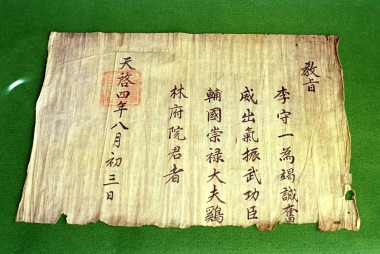 教旨
李守一為竭誠奮
威出氣振武功臣
輔國崇祿大夫鷄
林府院君者
天啓四年八月初三日